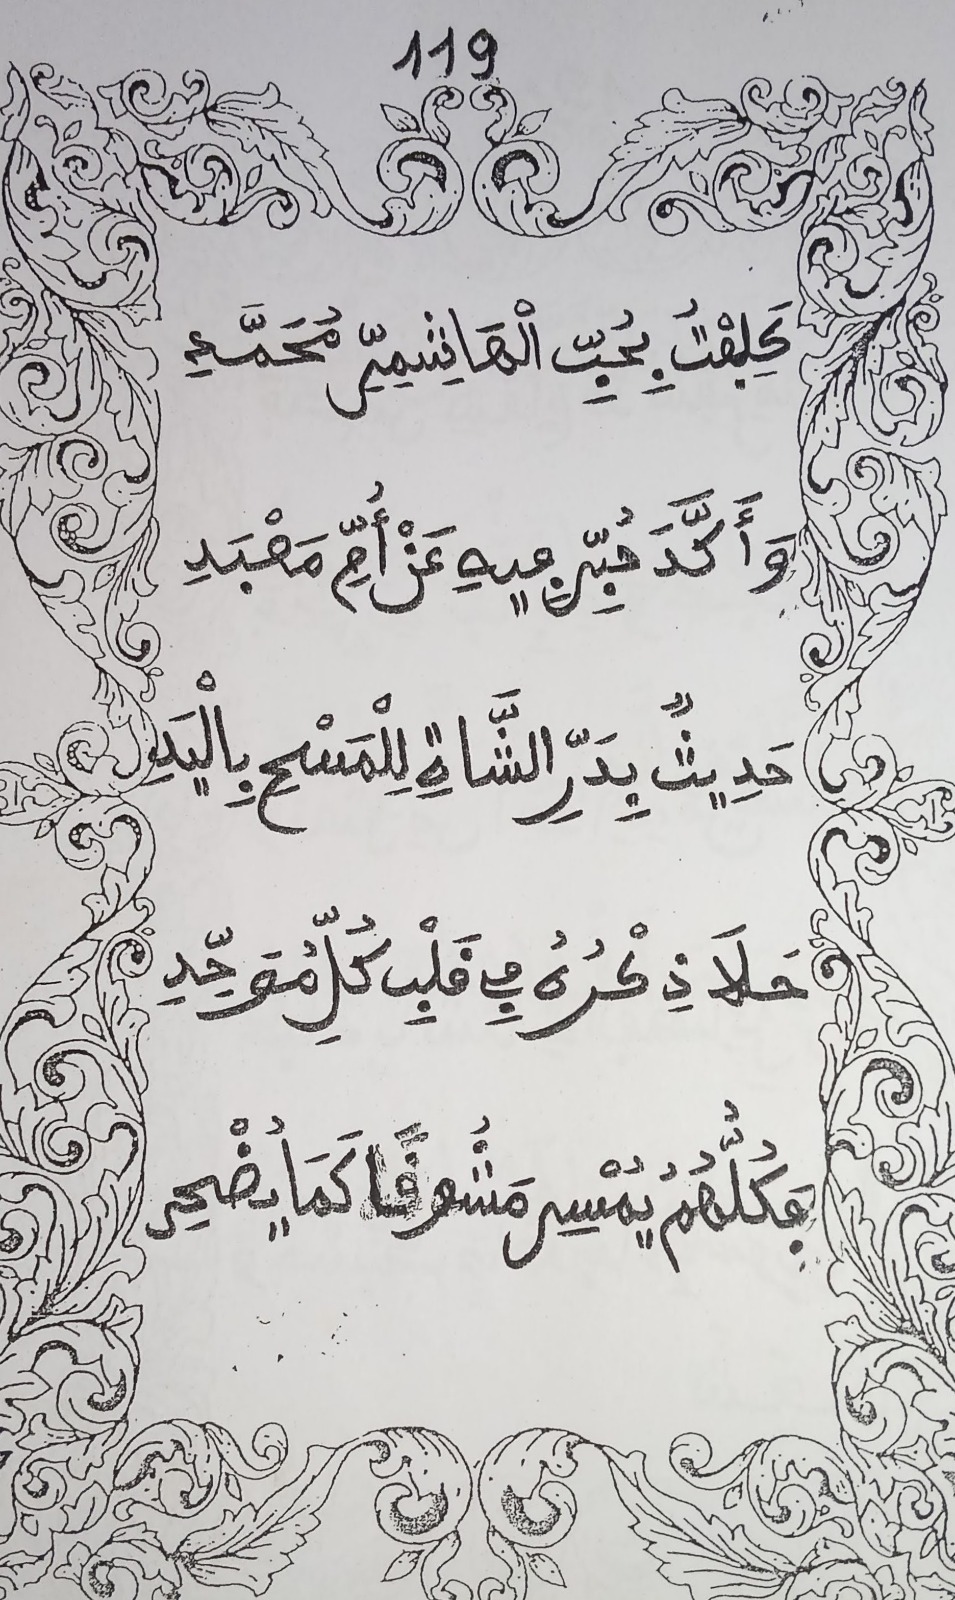 119
كَلِفْتُ بِحُبِّ الْهَاشِمِيِّ مُحَمَّدِ
وَأَكَّدَ حُبِّي فِيهِ عَنْ أُمِّ مَعْبَدِ
حَدِيثٌ بِدَرِّ الشَّاةِ لِلْمَسْحِ بِالْيَدِ
حَلَا ذِكْرُهُ فِي قَلْبِ كُلِّ مُوَحِّدِ
فَكُلُّهُمُ يُمْسِي مَشُوقًا كَمَا يُضْحِي